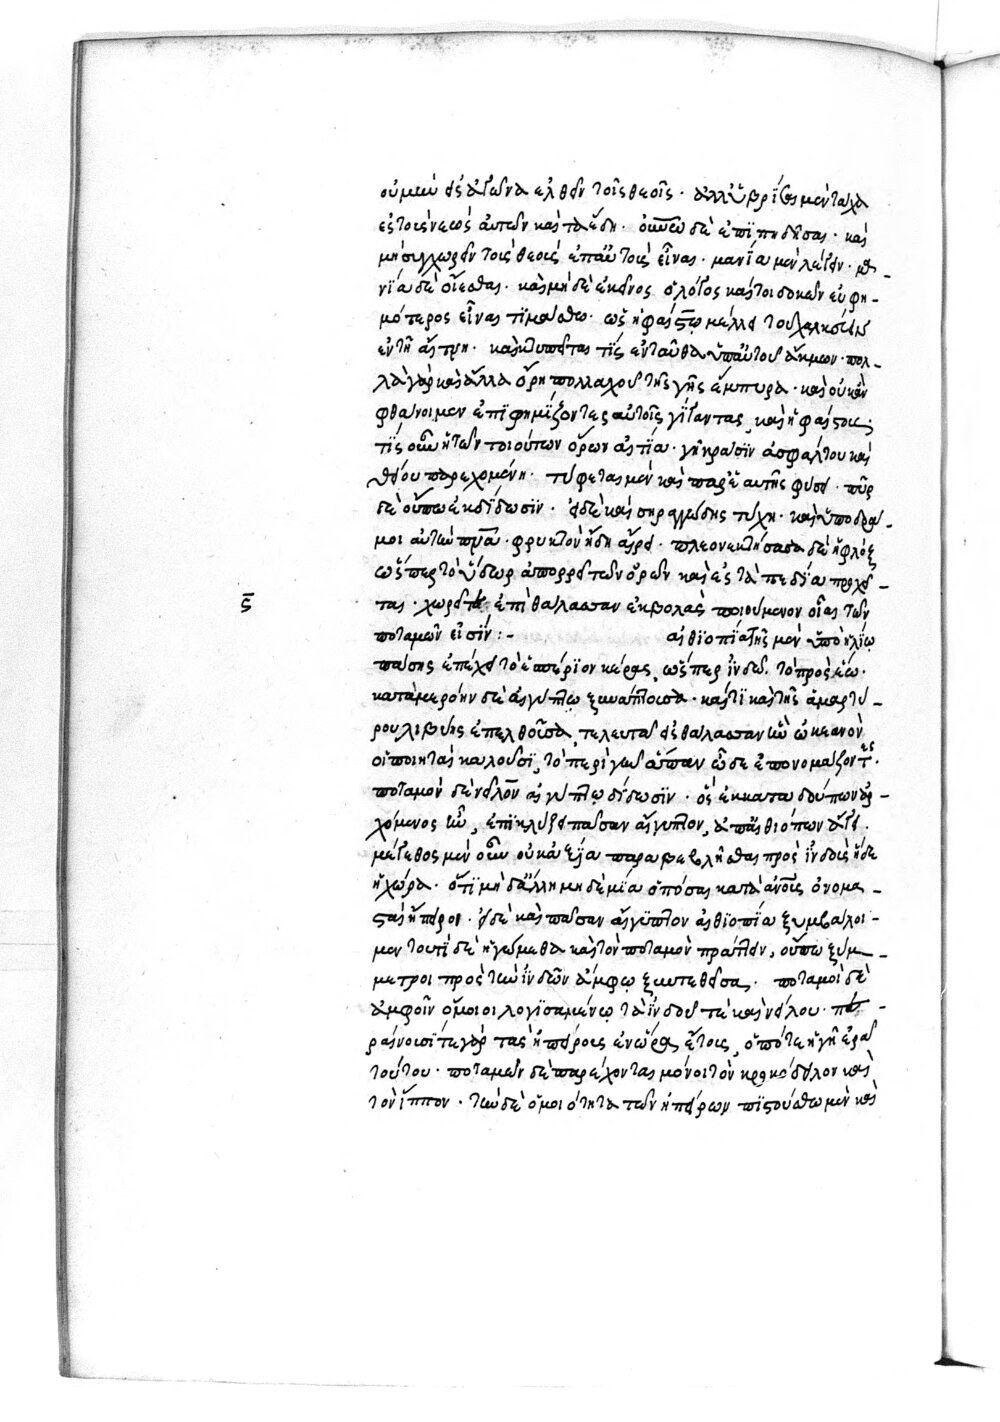 οὐ μὴν ἐς ἀγῶνα ἐλθεῖν τοῖς θεοῖς · ἀλλ' ὑβρίσαι μὲν τάχα
ἐς τοὺς νεὼς αὐτῶν καὶ τὰ ἕδη · οὐρανῶ δὲ ἐπιπηδῆσαι · καὶ
μὴ συγχωρεῖν τοὺς θεοὺς ἐπ' αὐτοῦ εἶναι · μανία μὲν λέγειν · μα-
νία δὲ οἴεσθαι · καὶ μηδὲ ἐκεῖνος ὁ λόγος καίτοι δοκῶν εὐφη-
μότερος εἶναι τιμάσθω · ὡς ἡφαίστω μέλει τοῦ χαλκεύειν
ἐν τῆ αἴτνη · καὶ κτυπεῖται τίς ἐνταῦθα ὑπ' αὐτοῦ ἄκμων · πολ-
λὰ γὰρ καὶ ἄλλα ὄρη πολλαχοῦ τῆς γῆς ἔμπυρα · καὶ οὐκ ἂν
φθάνοιμεν ἐπιφημίζοντες αὐτοῖς γίγαντας, καὶ ἡφαίστους ·
τίς οὖν ἡ τῶν τοιούτων ὀρῶν αἰτία · γῆ κρᾶσιν ἀσφάλτου καὶ
θείου παρεχομένη · τύφεται μὲν καὶ παρ' ἑαυτῆς φύσει · πῦρ
δὲ οὔπω ἐκδίδωσιν · εἰ δὲ καὶ σηραγγώδης τύχη · καὶ ὑποδρά-
μοι αὐτὴν πνεῦμα · φρυκτὸν ἤδη αἴρει · πλεονεκτήσασα δὲ ἡ φλὸξ
ὥσπερ τὸ ὕδωρ ἀπορρεῖ τῶν ὀρῶν καὶ ἐς τὰ πεδία προχεῖ-
ται · χωρεῖ τε ἐπὶ θάλασσαν ἐκβολὰς ποιούμενον οἷαι τῶν
ποταμῶν εἰσίν :- αἰθιοπία τῆς μὲν ὑπὸ ἡλίω
πάσης ἐπέχει τὸ ἑσπέριον κέρας, ὥσπερ ἰνδοὶ τὸ πρὸς ἕω ·
κατὰ μερόην δὲ αἰγύπτω ξυνάπτουσα · καί τι καὶ τῆς ἀμαρτύ-
ρου λιβύης ἐπελθοῦσα, τελευτᾶ ἐς θάλασσαν ἣν ὠκεανὸν
οἱ ποιηταὶ καλοῦσι, τὸ περὶ γῆν ἅπαν ὧδε ἐπονομάζοντες ·
ποταμὸν δὲ νεῖλον αἰγύπτω δίδωσιν · ὃς ἐκ καταδούπων ἀρ-
χόμενος ἣν, ἐπικλύζει πᾶσαν αἴγυπτον, ἀπ' αἰθιόπων ἄγει ·
μέγεθος μὲν οὖν οὐκ ἀξία παραβεβλῆσθαι πρὸς ἰνδοὺς ἥδε
ἡ χώρα · ὅτι μὴ δ' ἄλλη μηδεμία ὁπόσαι κατ' ἀνθρώπους ὀνομα-
σταὶ ἤπειροι · εἰ δὲ καὶ πᾶσαν αἴγυπτον αἰθιοπία ξυμβάλοι-
μεν τουτὶ δὲ ἡγώμεθα καὶ τὸν ποταμὸν πράττειν, οὔπω ξύμ-
μετροι πρὸς τὴν ἰνδῶν ἄμφω ξυντεθεῖσαι · ποταμοὶ δὲ
ἀμφοῖν ὅμοιοι λογισαμένω τὰ ἰνδοῦ τε καὶ νείλου ·
ραίνουσί τε γὰρ τὰς ἠπείρους ἐν ὥρα ἔτους, ὁπότε ἡ γῆ ἐρᾶ
τούτου · ποταμῶν δὲ παρέχονται μόνοι τὸν κροκόδειλον καὶ
τὸν ἵππον · τὴν δὲ ὁμοιότητα τῶν ἠπείρων πιστούσθω μὲν καὶ
ς̄